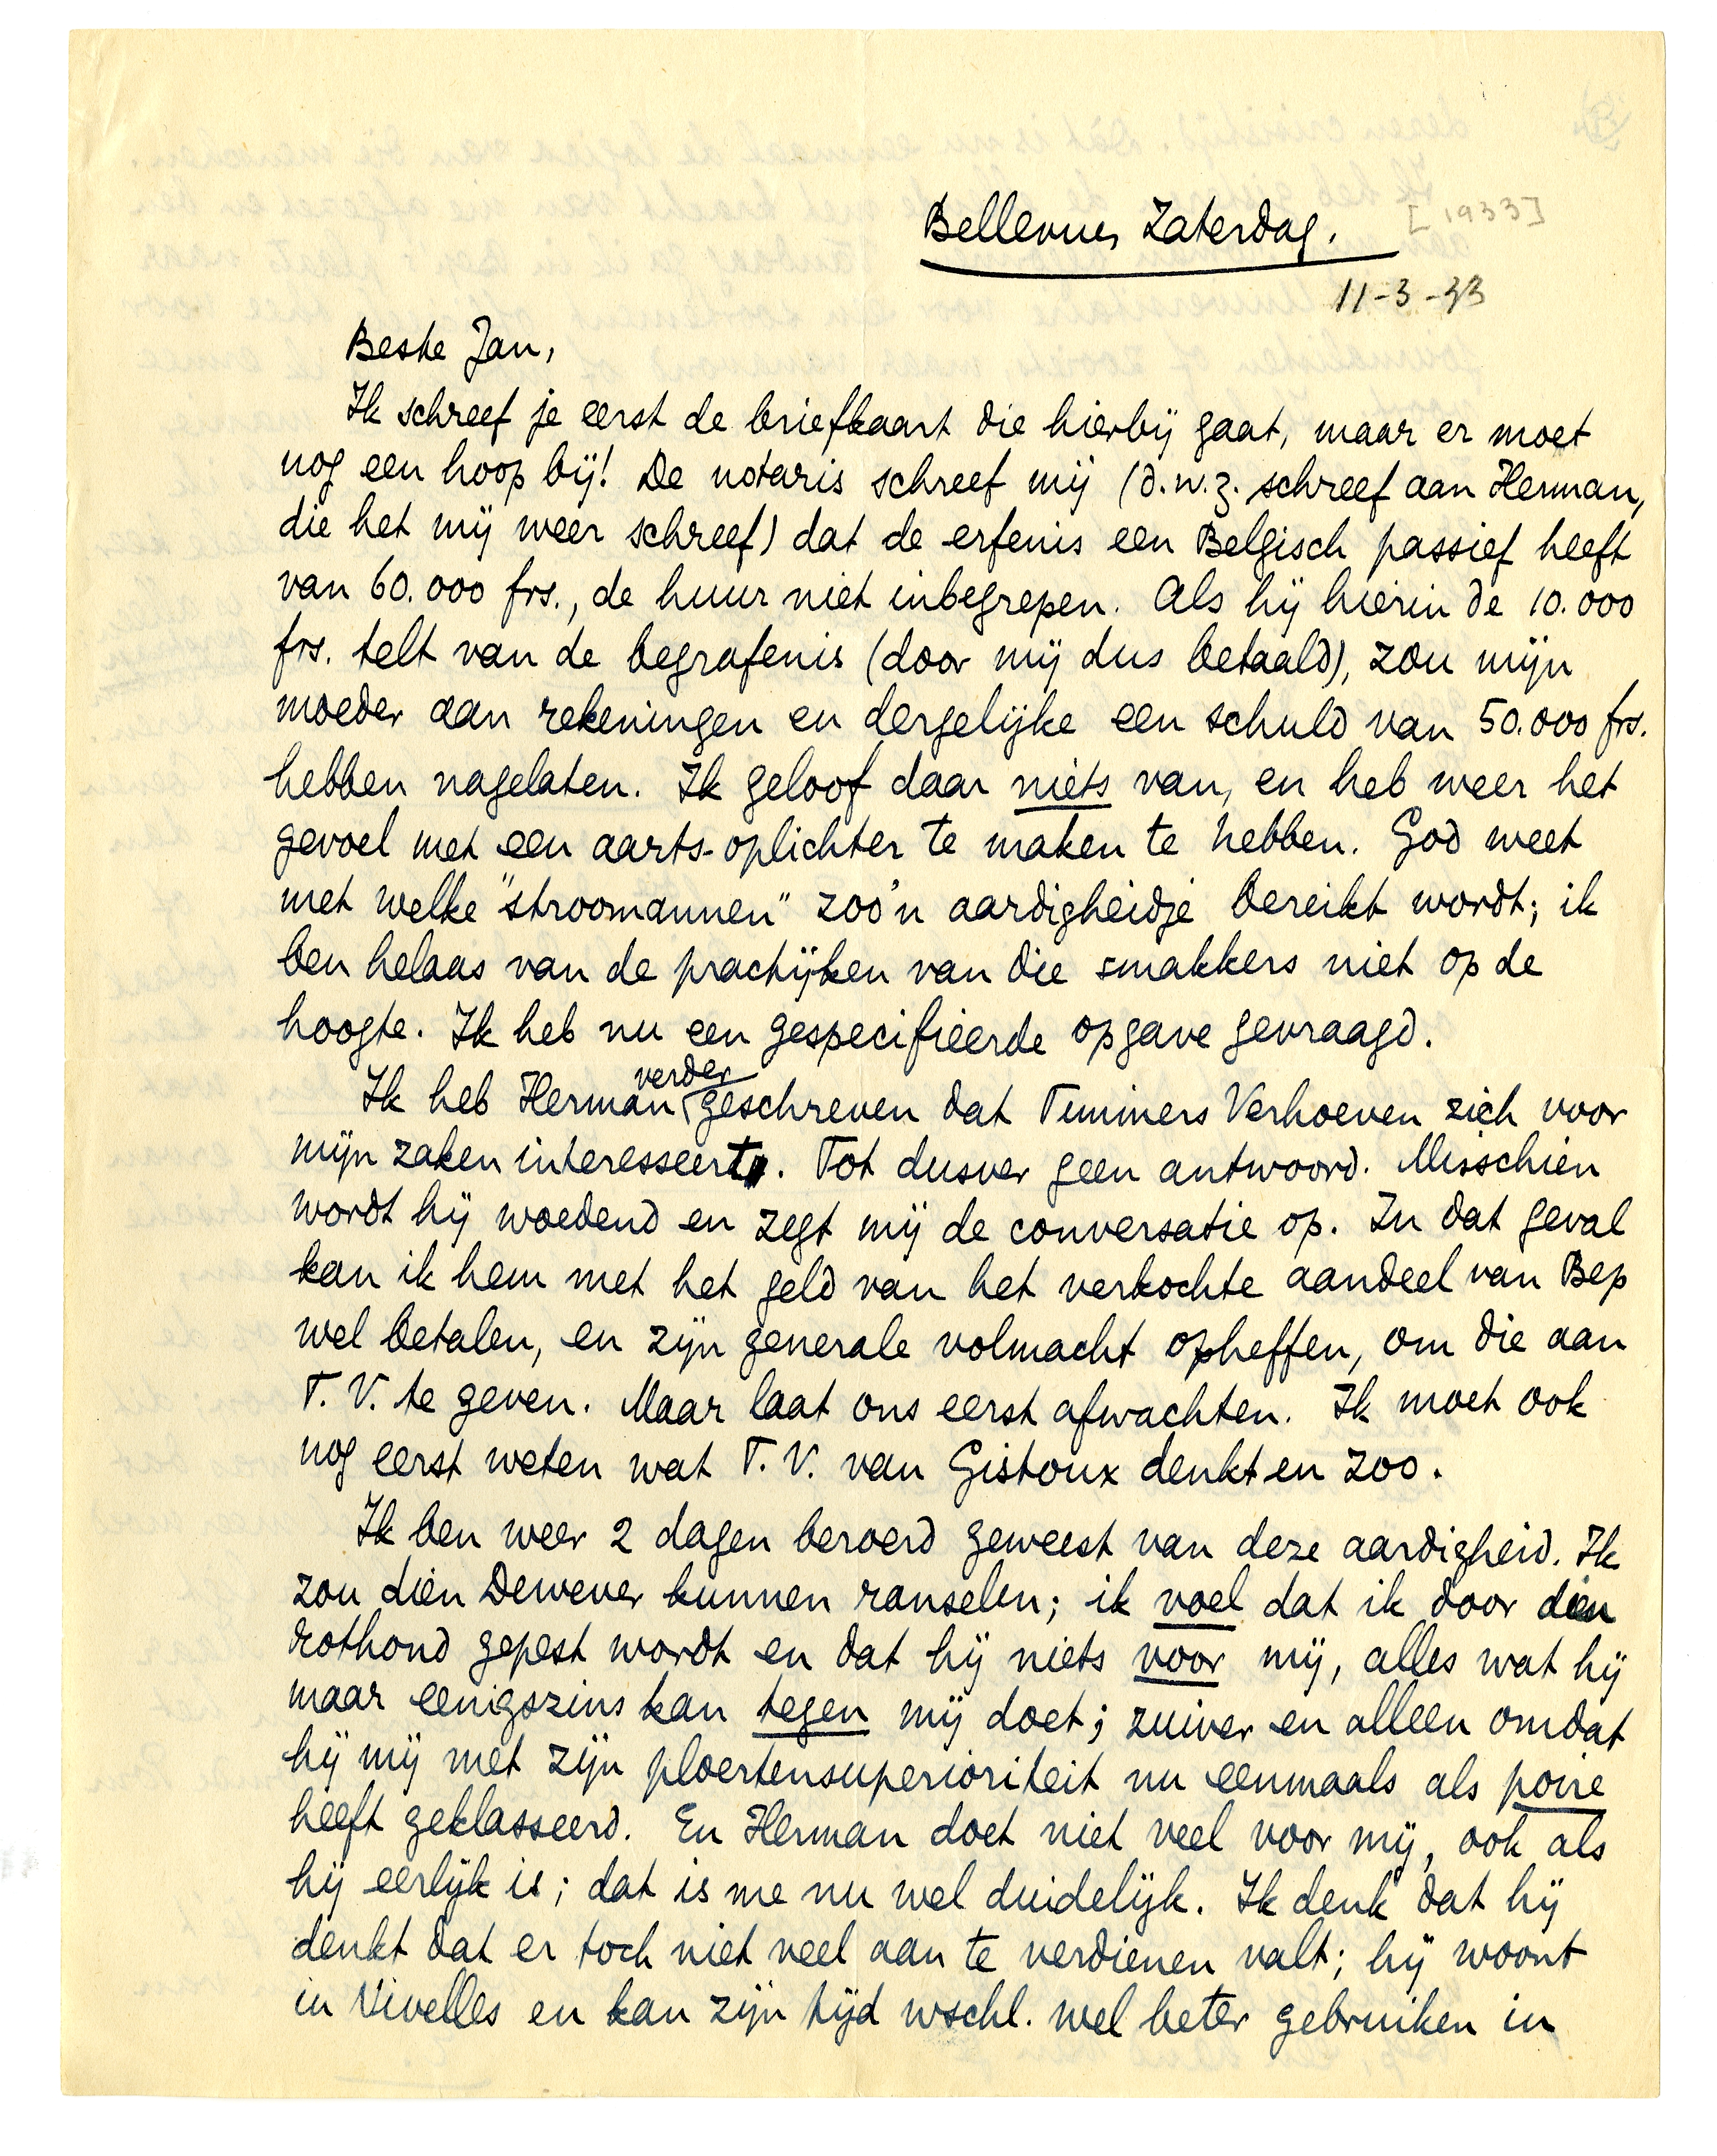 Bellevue, Zaterdag. [1933]
11-3-33
Beste Jan,
Ik schreef je eerst de briefkaart die hierbij gaat, maar er moet
nog een hoop bij! De notaris schreef mij (d.w.z. schreef aan Herman,
die het mij weer schreef) dat de erfenis een Belgisch passief heeft
van 60.000 frs., de huur niet inbegrepen. Als hij hierin de 10.000
frs. telt van de begrafenis (door mij dus betaald), zou mijn
moeder aan rekeningen en dergelijke een schuld van 50.000 frs.
hebben nagelaten. Ik geloof daar niets van, en heb weer het
gevoel met een aarts-oplichter te maken te hebben. God weet
met welke "stroomannen" zoo'n aardigheidje bereikt wordt; ik
ben helaas van de practijken van die smakkers niet op de
hoogte. Ik heb nu een gespecifieerde opgave gevraagd.
Ik heb Herman verder geschreven dat Timmers Verhoeven zich voor
mijn zaken interesseert. Tot dusver geen antwoord. Misschien
wordt hij woedend en zegt mij de conversatie op. In dat geval
kan ik hem met het geld van het verkochte aandeel van Bep
wel betalen, en zijn generale volmacht opheffen, om die aan
T.V. te geven. Maar laat ons eerst afwachten. Ik moet ook
nog eerst weten wat T.V. van Gistoux denkt en zoo.
Ik ben weer 2 dagen beroerd geweest van deze aardigheid. Ik
zou dien Dewever kunnen ranselen; ik voel dat ik door dien
rothond gepest wordt en dat hij niets voor mij, alles wat hij
maar eenigszins kan tegen mij doet; zuiver en alleen omdat
hij mij met zijn ploertensuperioriteit nu eenmaals als poire
heeft geklasseerd. En Herman doet niet veel voor mij, ook als
hij eerlijk is; dat is me nu wel duidelijk. Ik denk dat hij
denkt dat er toch niet veel aan te verdienen valt; hij woont
in Nivelles en kan zijn tijd wschl. wel beter gebruiken in